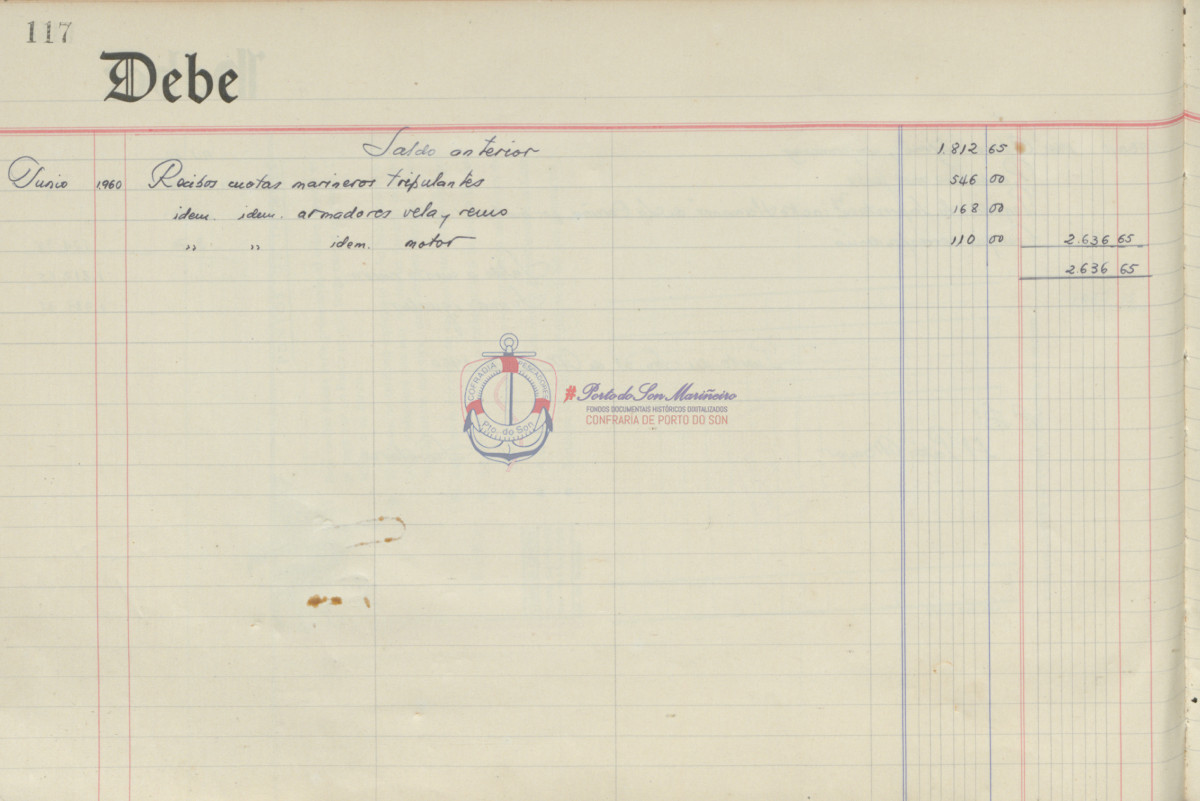 117
Debe
Saldo anterior 1.812 65
Junio 1960 Recibos cuotas marineros tripulantes 546 00
idem. idem. armadores vela y remo 168 00
„ „ idem. motor 110 00 2.636 65
2.636 65
COFRADIA PESCADORES
Pto. do Son
#Porto do Son Mariñeiro
FONDOS DOCUMENTAIS HISTÓRICOS DIXITALIZADOS
CONFRARÍA DE PORTO DO SON